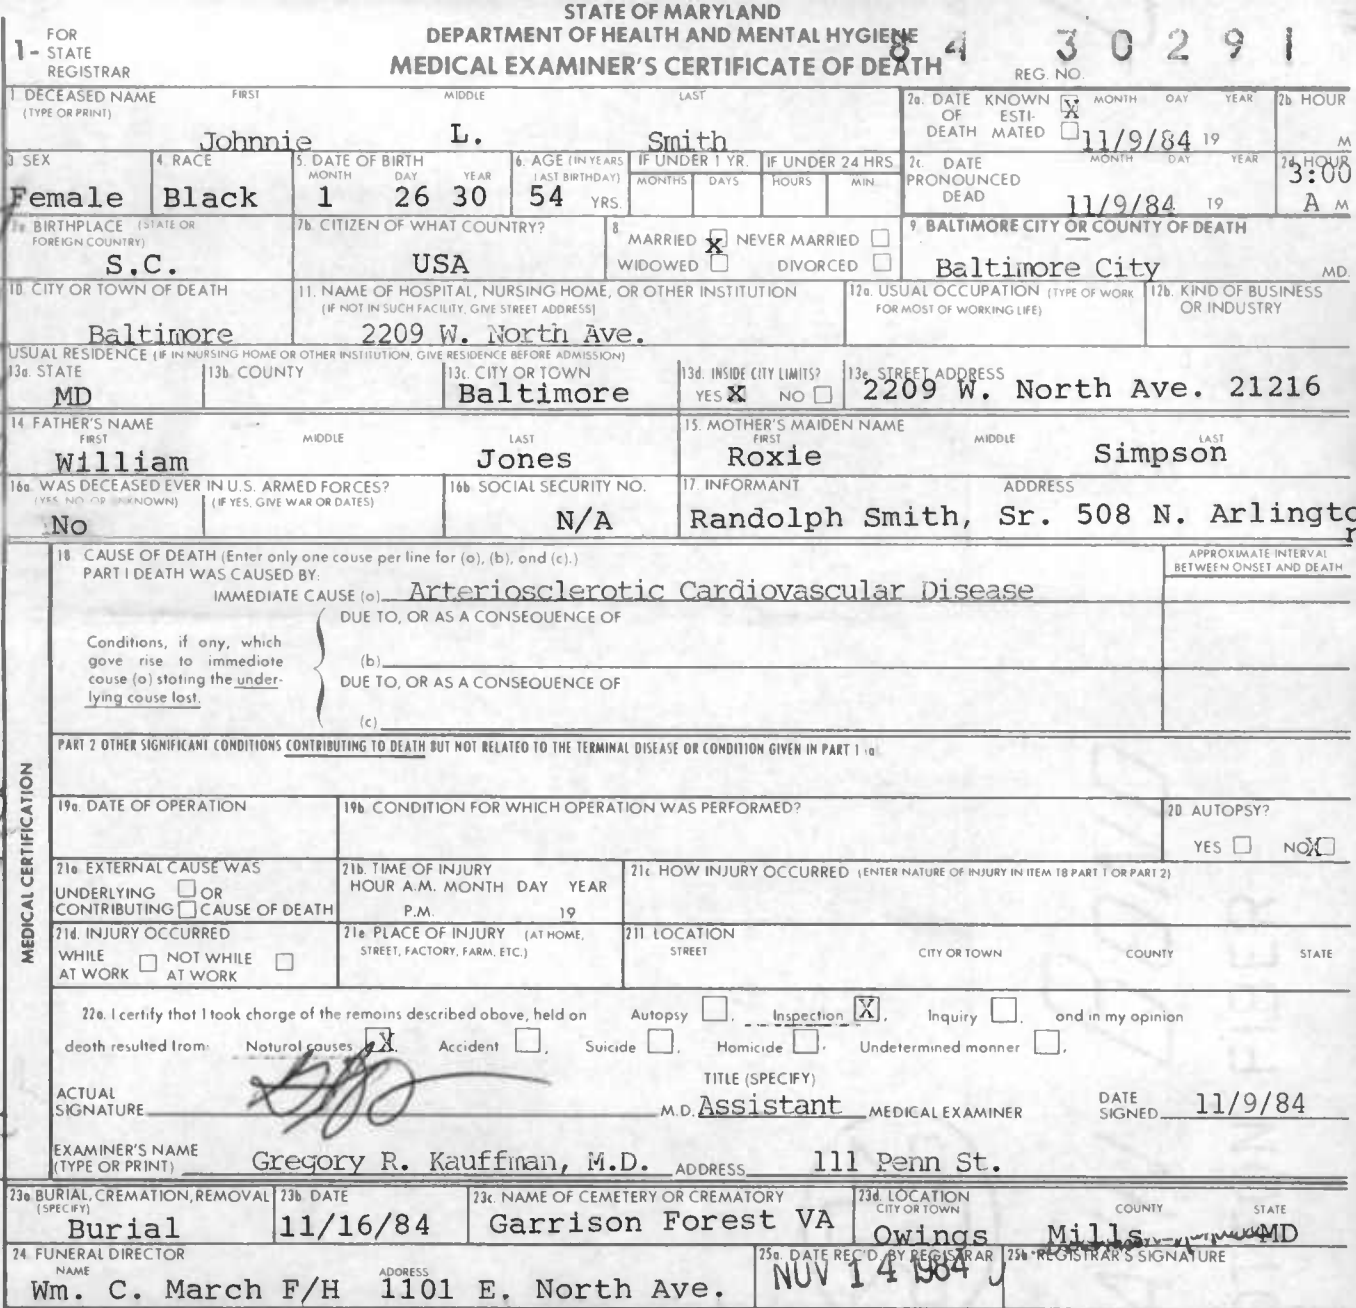 STATE OF MARYLAND
DEPARTMENT OF HEALTH AND MENTAL HYGIENE
MEDICAL EXAMINER'S CERTIFICATE OF DEATH
1- FOR STATE REGISTRAR
84 30291
REG. NO.
1 DECEASED NAME FIRST MIDDLE LAST
(TYPE OR PRINT)
Johnnie L. Smith
2a. DATE OF DEATH KNOWN X ESTIMATED MONTH DAY YEAR
11/9/84 19
2b HOUR M
3 SEX
Female
4. RACE
Black
5. DATE OF BIRTH
MONTH DAY YEAR
1 26 30
6. AGE (IN YEARS LAST BIRTHDAY)
54 YRS.
IF UNDER 1 YR. IF UNDER 24 HRS
MONTHS DAYS HOURS MIN.
2c. DATE PRONOUNCED DEAD MONTH DAY YEAR
11/9/84 19
2d HOUR
3:00
A M
7a BIRTHPLACE (STATE OR FOREIGN COUNTRY)
S.C.
7b. CITIZEN OF WHAT COUNTRY?
USA
8
MARRIED X NEVER MARRIED
WIDOWED DIVORCED
9 BALTIMORE CITY OR COUNTY OF DEATH
Baltimore City MD.
10. CITY OR TOWN OF DEATH
Baltimore
11. NAME OF HOSPITAL, NURSING HOME, OR OTHER INSTITUTION
(IF NOT IN SUCH FACILITY, GIVE STREET ADDRESS)
2209 W. North Ave.
12a. USUAL OCCUPATION (TYPE OF WORK FOR MOST OF WORKING LIFE)
12b. KIND OF BUSINESS OR INDUSTRY
USUAL RESIDENCE (IF IN NURSING HOME OR OTHER INSTITUTION, GIVE RESIDENCE BEFORE ADMISSION)
13a. STATE
MD
13b. COUNTY
13c. CITY OR TOWN
Baltimore
13d. INSIDE CITY LIMITS?
YES X NO
13e. STREET ADDRESS
2209 W. North Ave. 21216
14 FATHER'S NAME
FIRST MIDDLE LAST
William Jones
15. MOTHER'S MAIDEN NAME
FIRST MIDDLE LAST
Roxie Simpson
16a. WAS DECEASED EVER IN U.S. ARMED FORCES?
(YES, NO OR UNKNOWN) (IF YES, GIVE WAR OR DATES)
No
16b SOCIAL SECURITY NO.
N/A
17. INFORMANT ADDRESS
Randolph Smith, Sr. 508 N. Arlingto
n
MEDICAL CERTIFICATION
18 CAUSE OF DEATH (Enter only one couse per line for (a), (b), and (c).)
PART I DEATH WAS CAUSED BY:
IMMEDIATE CAUSE (a) Arteriosclerotic Cardiovascular Disease
APPROXIMATE INTERVAL BETWEEN ONSET AND DEATH
Conditions, if any, which
gove rise to immediote
couse (o) stoting the under-
lying couse lost.
DUE TO, OR AS A CONSEQUENCE OF
(b)
DUE TO, OR AS A CONSEQUENCE OF
(c)
PART 2 OTHER SIGNIFICANT CONDITIONS CONTRIBUTING TO DEATH BUT NOT RELATED TO THE TERMINAL DISEASE OR CONDITION GIVEN IN PART 1 (a
19a. DATE OF OPERATION
19b CONDITION FOR WHICH OPERATION WAS PERFORMED?
20 AUTOPSY?
YES NO X
21a EXTERNAL CAUSE WAS
UNDERLYING OR
CONTRIBUTING CAUSE OF DEATH
21b. TIME OF INJURY
HOUR A.M. MONTH DAY YEAR
P.M. 19
21c HOW INJURY OCCURRED (ENTER NATURE OF INJURY IN ITEM 18 PART 1 OR PART 2)
21d. INJURY OCCURRED
WHILE AT WORK NOT WHILE AT WORK
21e PLACE OF INJURY (AT HOME, STREET, FACTORY, FARM, ETC.)
21f LOCATION
STREET CITY OR TOWN COUNTY STATE
22a. I certify that I took charge of the remoins described above, held on Autopsy , Inspection X , Inquiry , ond in my opinion
death resulted from: Noturol couses X , Accident , Suicide , Homicide , Undetermined monner .
ACTUAL SIGNATURE
M.D. TITLE (SPECIFY) Assistant MEDICAL EXAMINER
DATE SIGNED 11/9/84
EXAMINER'S NAME (TYPE OR PRINT) Gregory R. Kauffman, M.D. ADDRESS 111 Penn St.
23a BURIAL, CREMATION, REMOVAL (SPECIFY)
Burial
23b DATE
11/16/84
23c. NAME OF CEMETERY OR CREMATORY
Garrison Forest VA
23d. LOCATION
CITY OR TOWN COUNTY STATE
Owings Mills MD
24 FUNERAL DIRECTOR
NAME ADDRESS
Wm. C. March F/H 1101 E. North Ave.
25a. DATE REC'D. BY REGISTRAR
NOV 14 1984
25b REGISTRAR'S SIGNATURE